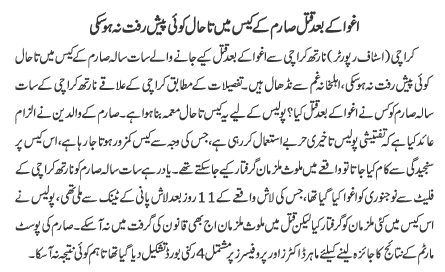 اغوا کے بعد قتل صارم کے کیس میں تاحال کوئی پیش رفت نہ ہوسکی
کراچی (اسٹاف رپورٹر) نارتھ کراچی سے اغوا کے بعد قتل کیے جانے والے سات سالہ صارم کے کیس میں تاحال
کوئی پیش رفت نہ ہوسکی، اہلخانہ غم سے نڈھال ہیں۔ تفصیلات کے مطابق کراچی کے علاقے نارتھ کراچی کے سات
سالہ صارم کو کس نے اغوا کے بعد قتل کیا؟ پولیس کے لیے یہ کیس تاحال معمہ بنا ہوا ہے۔ صارم کے والدین نے الزام
عائد کیا ہے کہ تفتیشی پولیس تاخیری حربے استعمال کر رہی ہے، جس کی وجہ سے کیس کمزور ہوتا جا رہا ہے، اس کیس پر
سنجیدگی سے کام کیا جاتا تو واقعے میں ملوث ملزمان گرفتار کیے جاسکتے تھے۔ یاد رہے سات سالہ صارم کو نارتھ کراچی کے
فلیٹ سے نو جنوری کو اغوا کیا گیا تھا، جس کی لاش واقعے کے 11 روز بعد لاش پانی کے ٹینک سے ملی تھی، پولیس نے
اس کیس میں کئی ملزمان کو گرفتار کیا لیکن قتل میں ملوث ملزمان آج بھی قانون کی گرفت میں نہ آسکے۔ صارم کی پوسٹ
مارٹم کے نتائج کا جائزہ لینے کیلئے ماہر ڈاکٹرز اور پروفیسرز پر مشتمل 4 رکنی بورڈ تشکیل دیا گیا تھا تاہم کوئی نتیجہ نہ آسکا۔